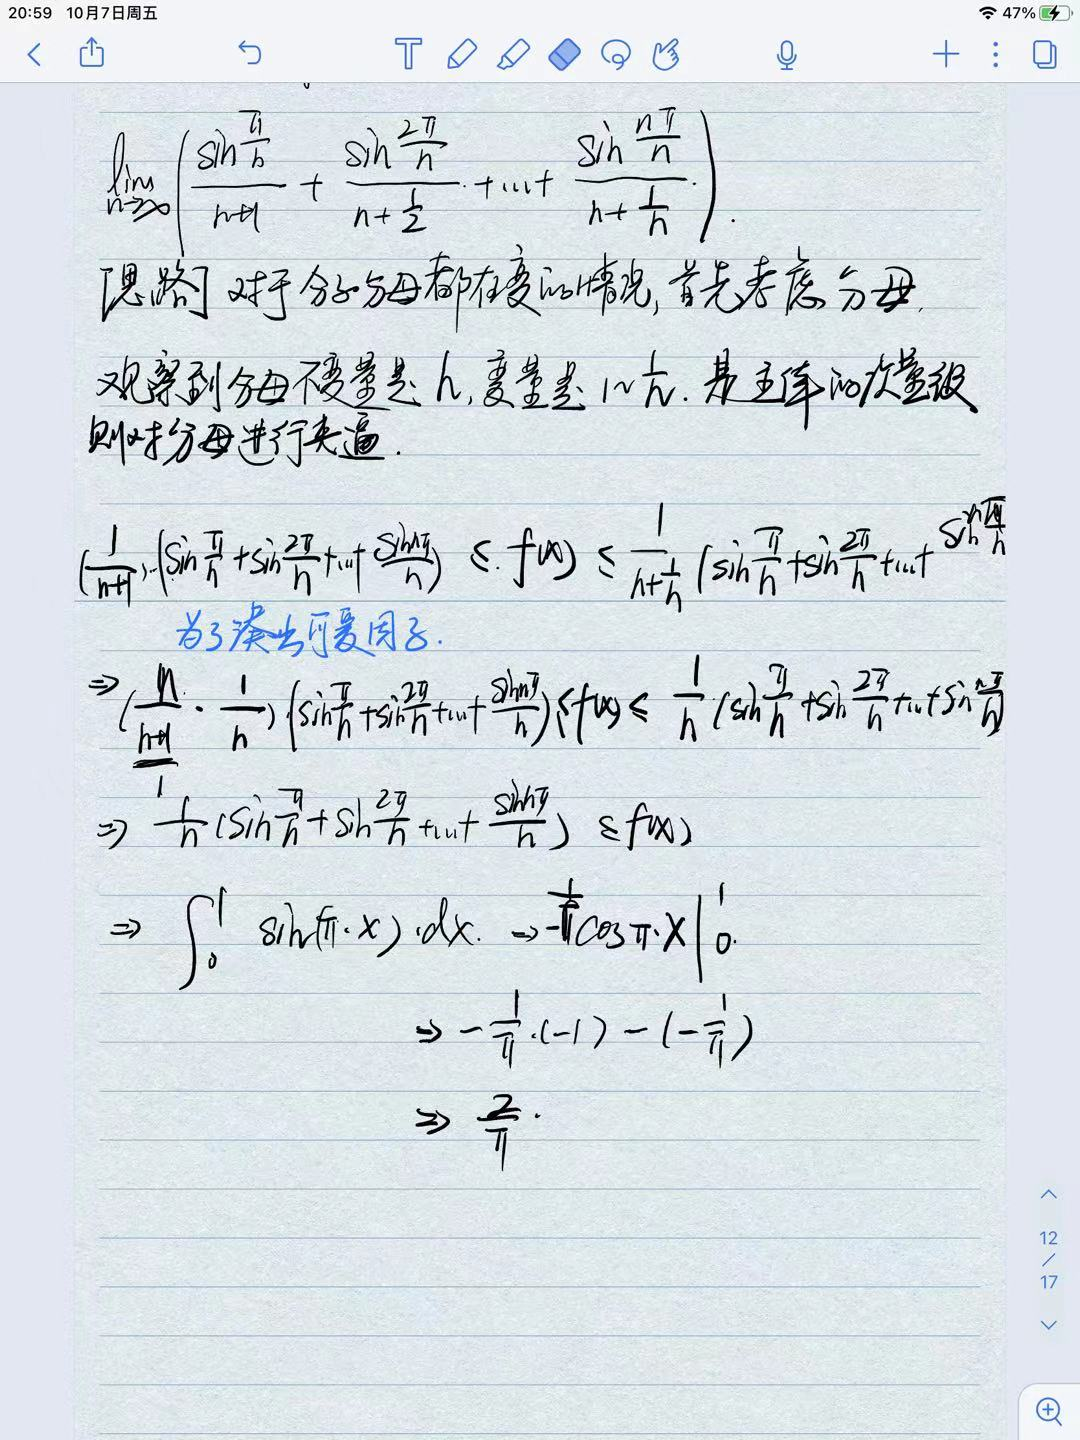 20:59 10月7日周五 47%
lim n→∞ ( sin π/n / (n+1) + sin 2π/n / (n+1/2) + ... + sin nπ/n / (n+1/n) ).
[思路] 对于分子分母都在变的情况, 首先考虑分母.
观察到分母不变量是 n, 变量是 1~1/n. 是主体的次量级
则对分母进行夹逼.
(1/(n+1))·(sin π/n + sin 2π/n + ... + sin nπ/n) ≤ f(x) ≤ 1/(n+1/n) (sin π/n + sin 2π/n + ... + sin nπ/n
为了凑出可爱因子.
⇒ (n/(n+1) · 1/n)·(sin π/n + sin 2π/n + ... + sin nπ/n) ≤ f(x) ≤ 1/n·(sin π/n + sin 2π/n + ... + sin nπ/n)
1
⇒ 1/n (sin π/n + sin 2π/n + ... + sin nπ/n) ≤ f(x)
⇒ ∫₀¹ sin(π·x)·dx. ⇒ -1/π cos π·x |₀¹.
⇒ -1/π·(-1) - (-1/π)
⇒ 2/π.
12
/
17